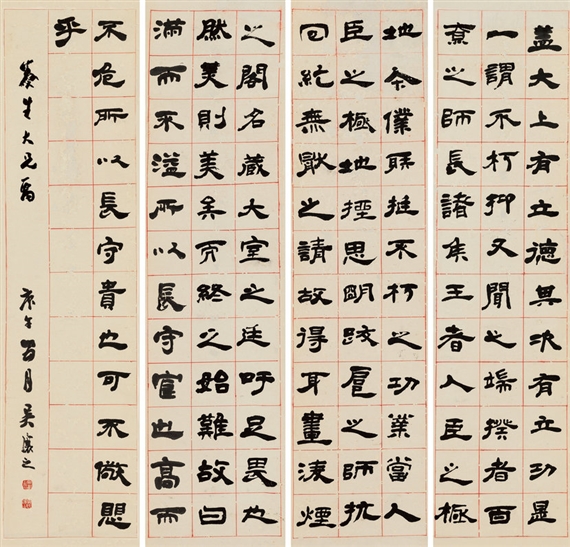 盖大上有立德其次有立功是
一謂不朽抑又聞之端揆者百
寮之師長諸侯王者人臣之極
地今僕射挺不朽之功業當人
臣之極地挫思明跋扈之師抗
回紇無厭之請故得身畫凌煙
之閣名藏大室之廷吁足畏也
然美則美矣而終之始難故曰
滿而不溢所以長守富也高而
不危所以長守貴也可不儆懼
乎
葵生大兄屬
庚午 月吳讓之